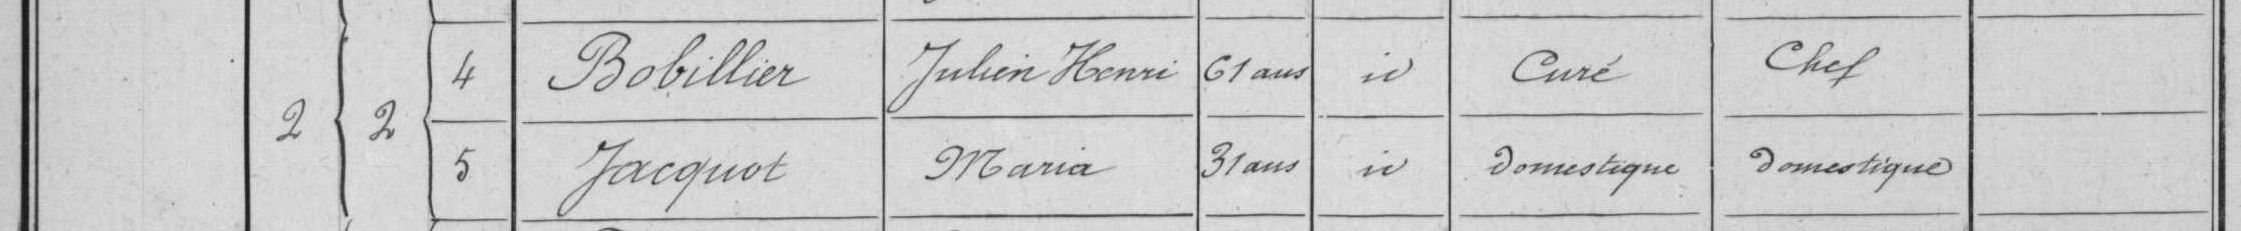 4 Bobillier Julien Henri 61 ans id Curé Chef
2 2
5 Jacquot Maria 31 ans id Domestique Domestique